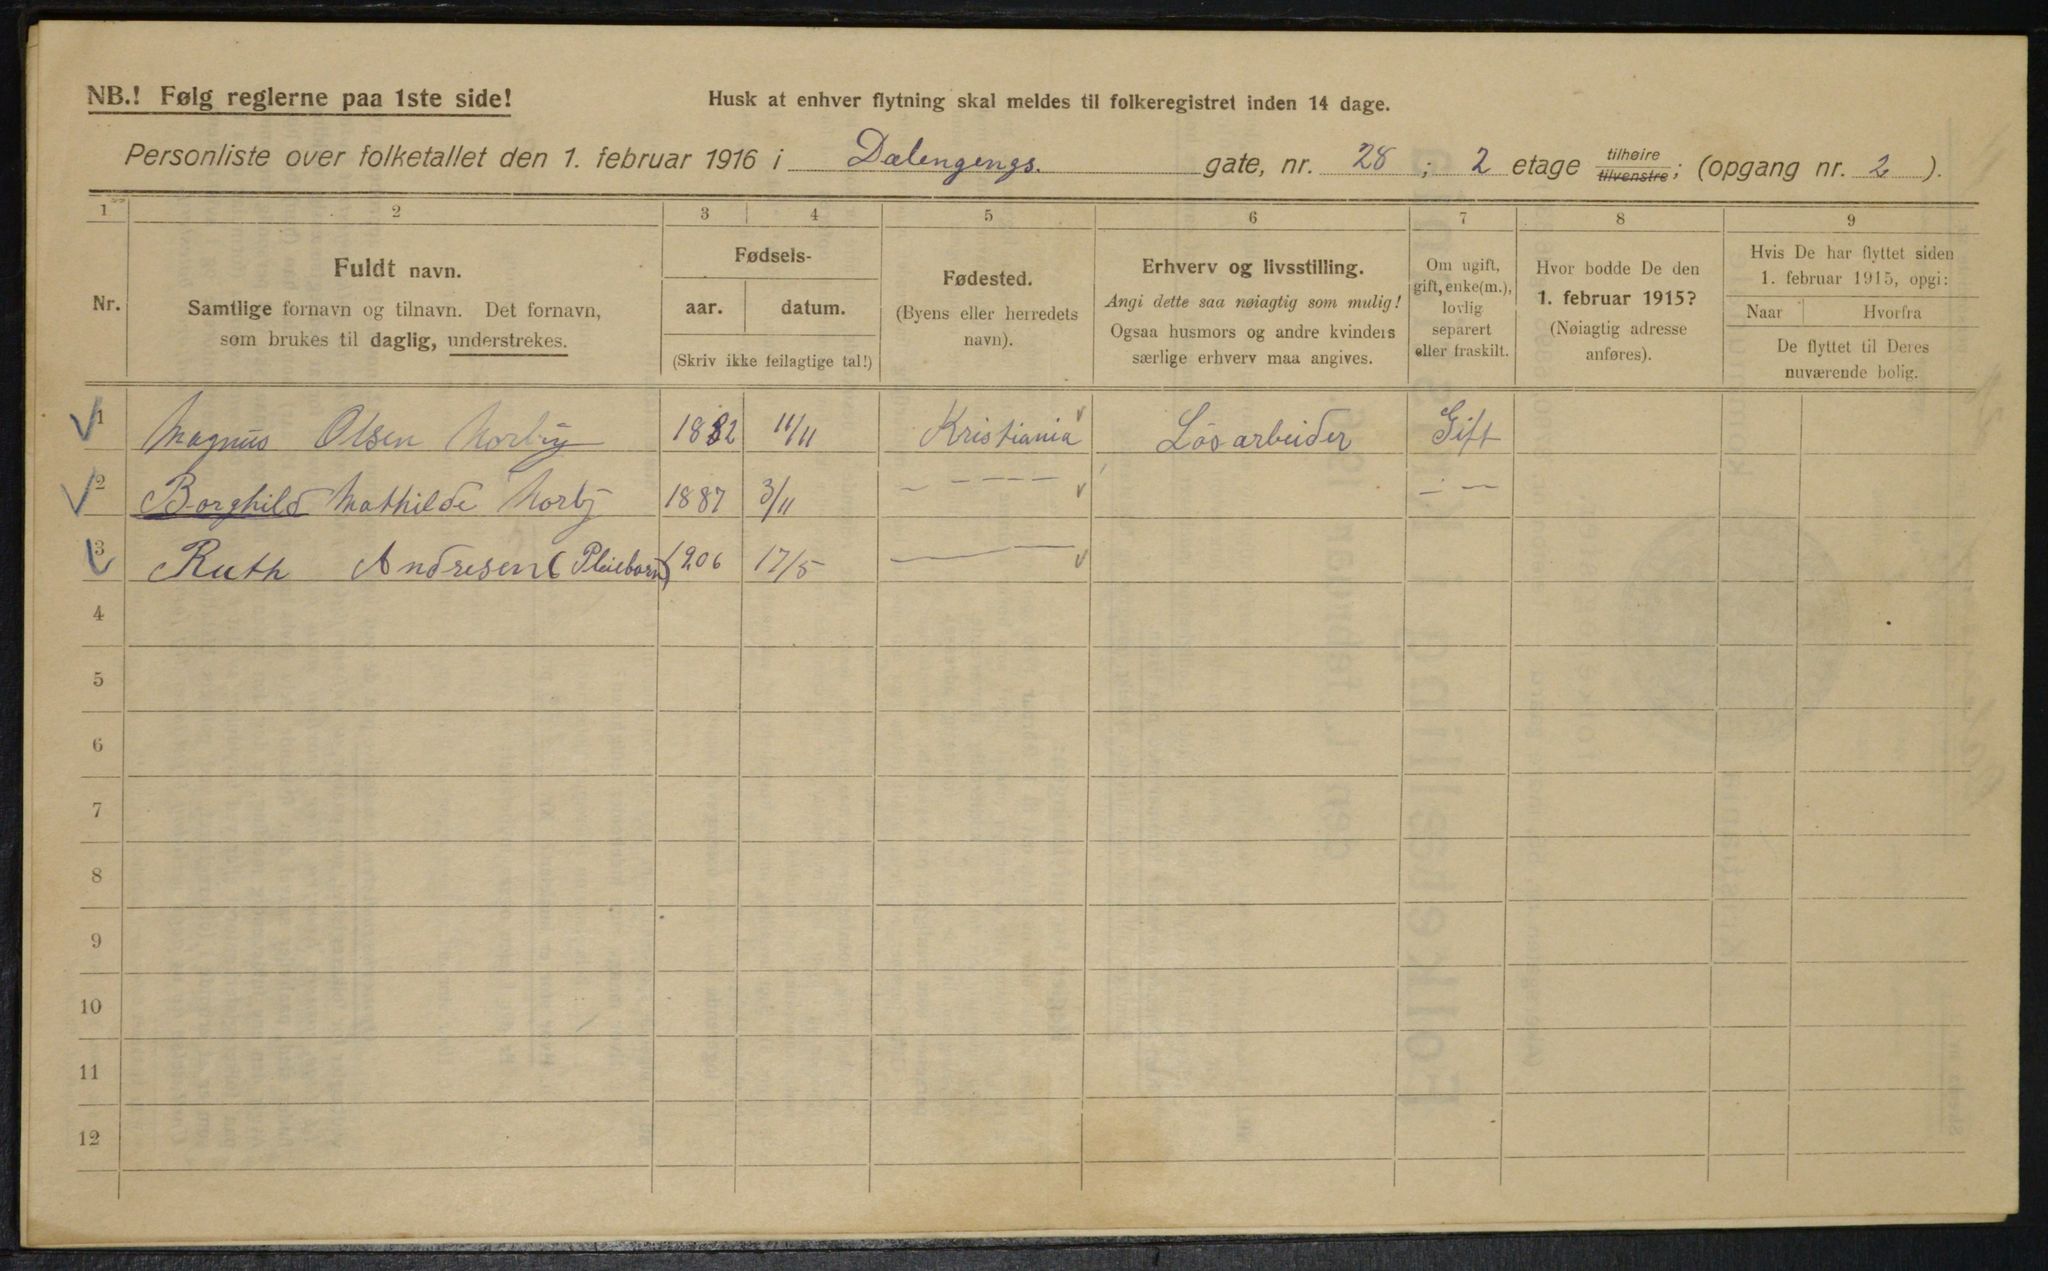 NB.! Følg reglerne paa 1ste side!
Husk at enhver flytning skal meldes til folkeregistret inden 14 dage.
Personliste over folketallet den 1. februar 1916 i Dælengengs. gate, nr. 28 ; 2 etage tilhøire tilvenstre; (opgang nr. 2 ).
1 2 3 4 5 6 7 8 9
Nr.
Fuldt navn.
Samtlige fornavn og tilnavn. Det fornavn,
som brukes til daglig, understrekes.
Fødsels-
aar. datum.
(Skriv ikke feilagtige tal!)
Fødested.
(Byens eller herredets
navn).
Erhverv og livsstilling.
Angi dette saa nøiagtig som mulig!
Ogsaa husmors og andre kvinders
særlige erhverv maa angives.
Om ugift,
gift, enke(m.),
lovlig
separert
eller fraskilt.
Hvor bodde De den
1. februar 1915?
(Nøiagtig adresse
anføres).
Hvis De har flyttet siden
1. februar 1915, opgi:
Naar Hvorfra
De flyttet til Deres
nuværende bolig.
1 Magnus Olsen Norby 1882 11/11 Kristiania Løsarbeider Gift
2 Borghild Mathilde Norby 1887 3/11 — — — — — — —
3 Ruth Andresen (Pleiebarn) 906 17/5 — —
4
5
6
7
8
9
10
11
12